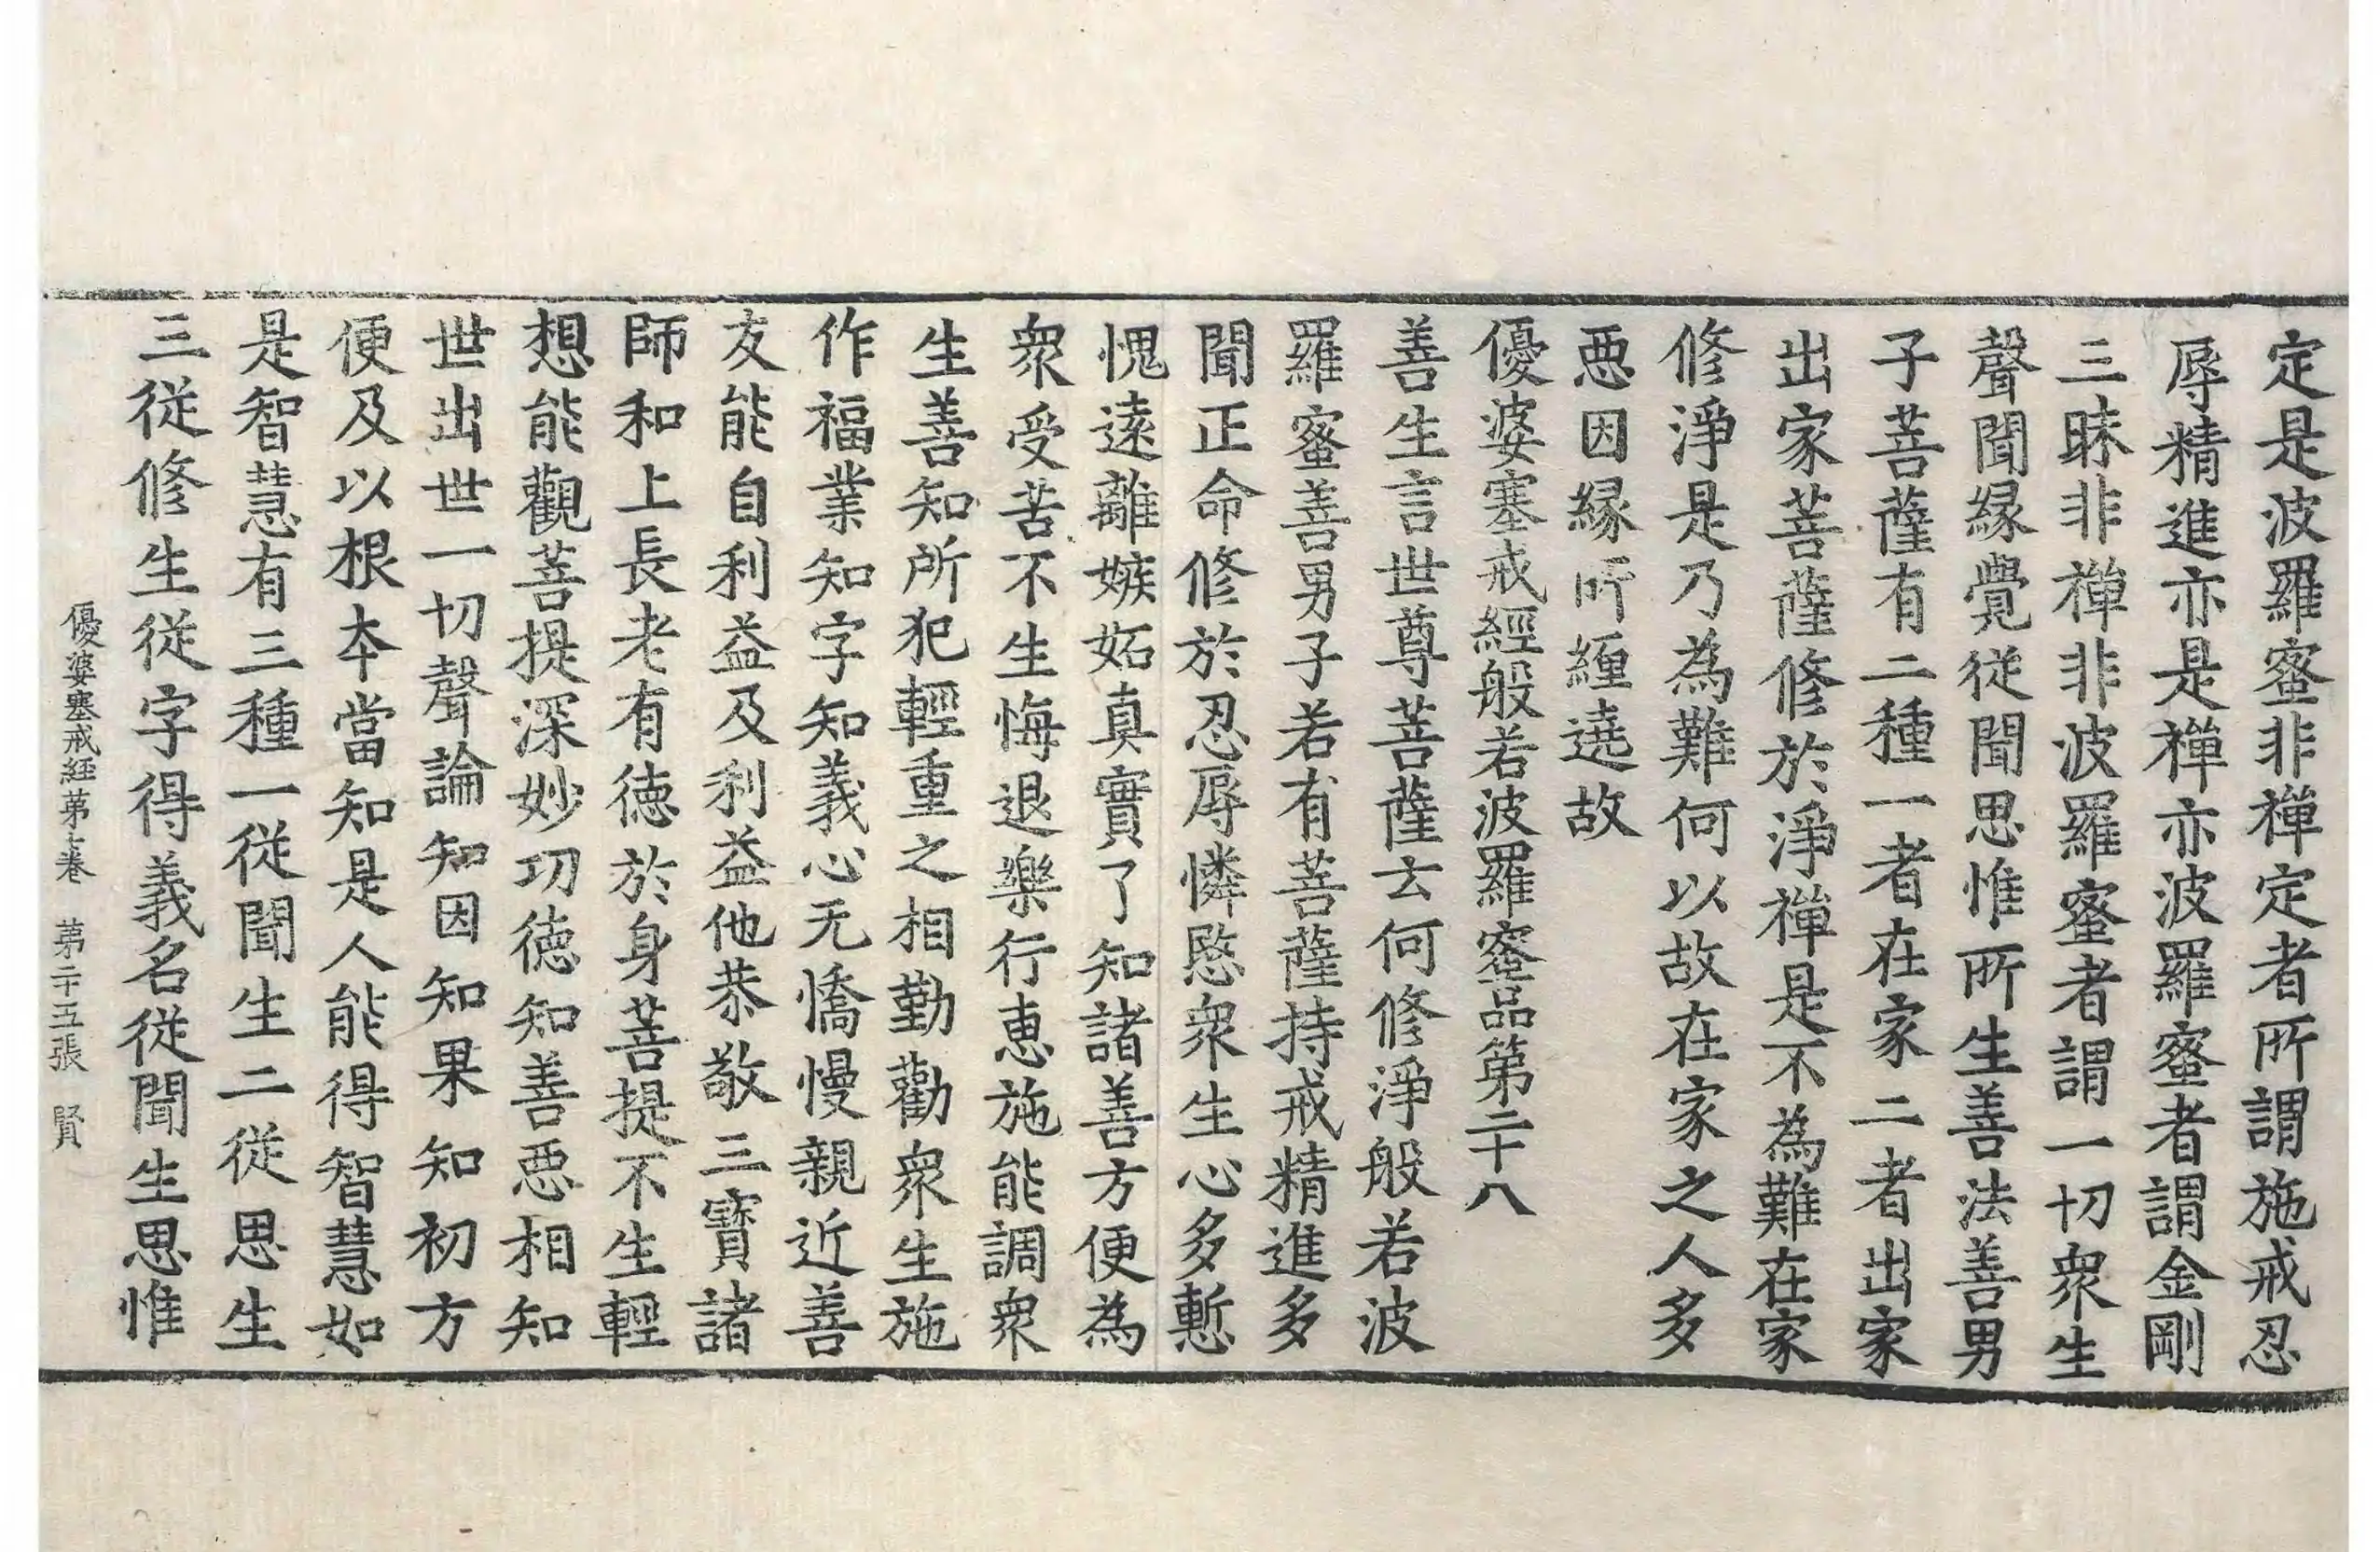 定是波羅蜜非禪定者所謂施戒忍
辱精進亦是禪亦波羅蜜者謂金剛
三昧非禪非波羅蜜者謂一切衆生
聲聞縁覺従聞思惟所生善法善男
子菩薩有二種一者在家二者出家
出家菩薩修於淨禪是不為難在家
修淨是乃為難何以故在家之人多
惡因縁所纏遶故
優婆塞戒經般若波羅蜜品第二十八
善生言世尊菩薩云何修淨般若波
羅蜜善男子若有菩薩持戒精進多
聞正命修於忍辱憐愍衆生心多慙
愧遠離嫉妬真實了知諸善方便為
衆受苦不生悔退樂行恵施能調衆
生善知所犯輕重之相勤勸衆生施
作福業知字知義心无憍慢親近善
友能自利益及利益他恭敬三寶諸
師和上長老有徳於身菩提不生輕
想能觀菩提深妙功徳知善惡相知
世出世一切聲論知因知果知初方
便及以根本當知是人能得智慧如
是智慧有三種一従聞生二従思生
三従修生従字得義名従聞生思惟
優婆塞戒経苐七巻　苐二十五張　賢